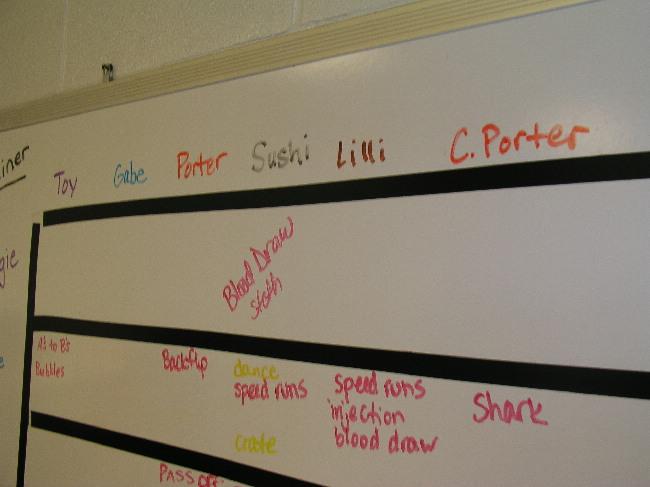 iner
Toy Gabe Porter Sushi Lilli C. Porter
gie
Blood Draw
sloth
A's to B's
Bubbles
Backflip
dance
speed runs
crate
speed runs
injection
blood draw
Shark
Pass off